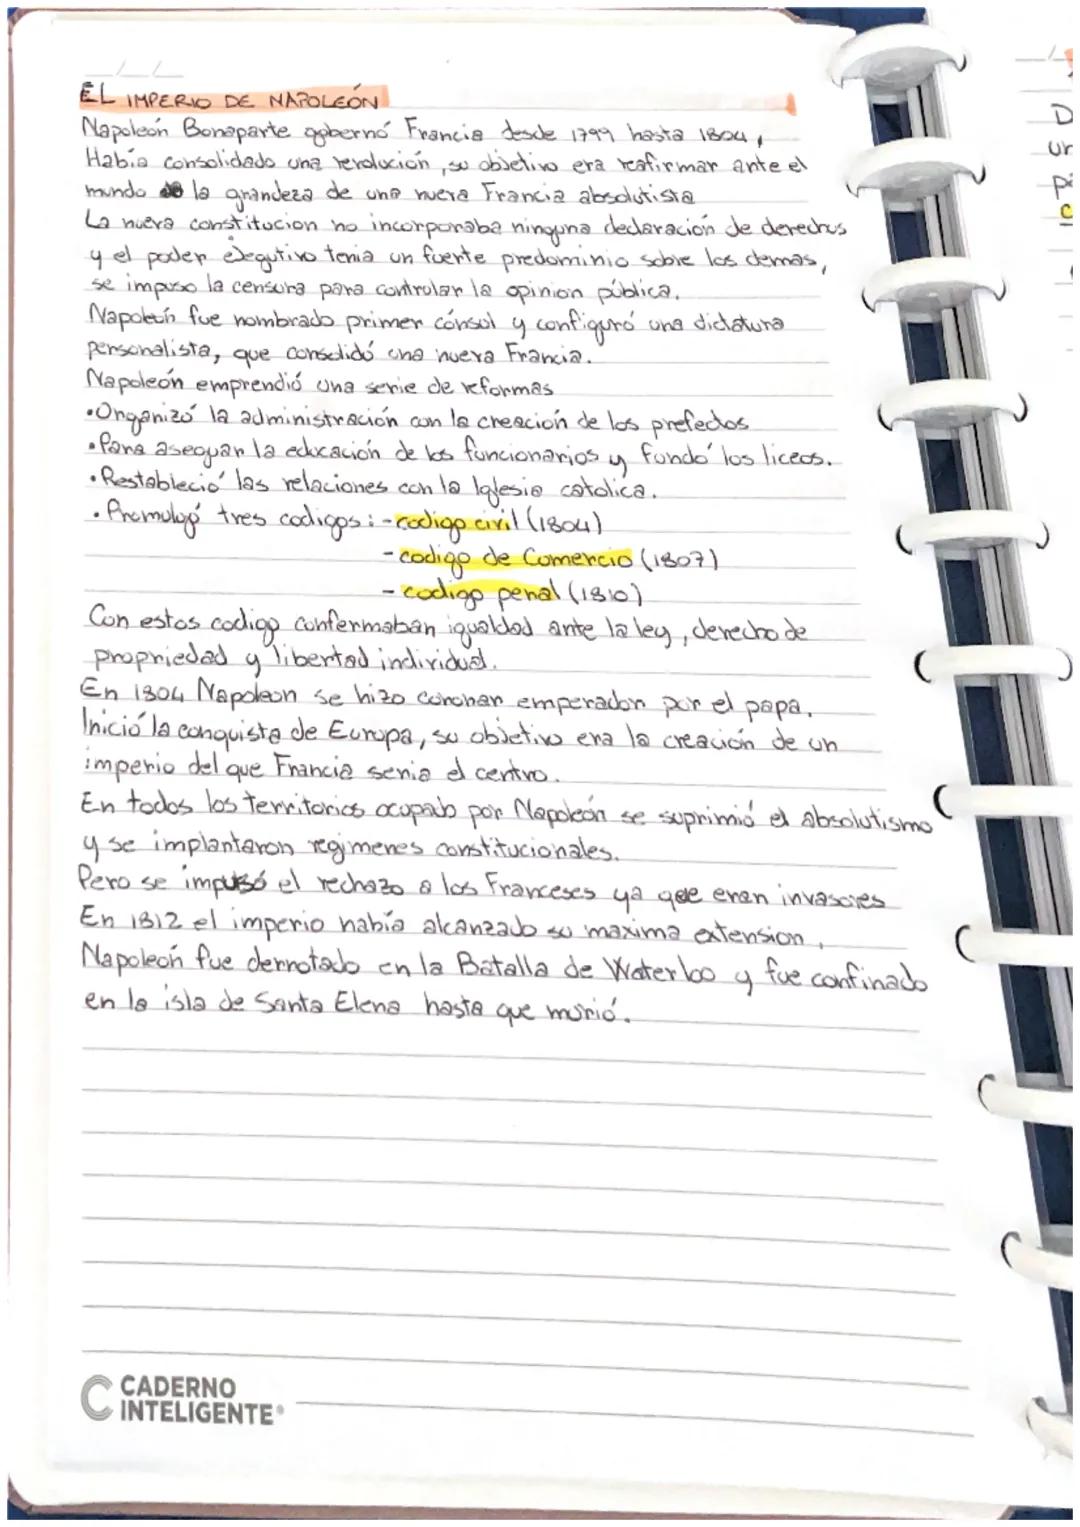 EL IMPERIO DE NAPOLEÓN
Napoleón Bonaparte gobernó Francia desde 1799 hasta 1804,
Había consolidado una revolución, su objetivo era reafirmar ante el
mundo la grandeza de una nueva Francia absolutista
La nueva constitucion no incorporaba ninguna declaración de derechos
y el poder ejegutivo tenia un fuerte predominio sobre los demas,
se impuso la censura para controlar la opinion pública.
Napoleón fue nombrado primer cónsul y configuró una dictatura
personalista, que consolidó una nueva Francia.
Napoleón emprendió una serie de reformas
•Organizó la administración con la creación de los prefectos
•Para asegurar la educación de los funcionarios y fundó los liceos.
•Restableció las relaciones con la Iglesia catolica.
•Promulgó tres codigos: -codigo civil (1804)
-codigo de Comercio (1807)
-codigo penal (1810)
Con estos codigo confermaban igualdad ante la ley, derecho de
propriedad y libertad individual.
En 1804 Napoleon se hizo coronar emperador por el papa.
Inició la conquista de Europa, su objetivo era la creación de un
imperio del que Francia seria el centro.
En todos los territorios ocupado por Napoleón se suprimió el absolutismo
y se implantaron regimenes constitucionales.
Pero se impusó el rechazo a los Franceses ya que eran invasores
En 1812 el imperio había alcanzado su maxima extension,
Napoleón fue derrotado en la Batalla de Waterloo y fue confinado
en la isla de Santa Elena hasta que murió.
CADERNO
INTELIGENTE